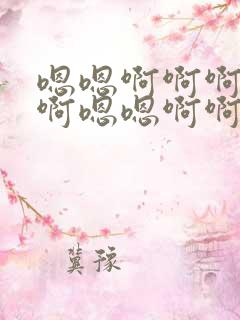 嗯嗯啊啊啊
啊嗯嗯啊啊
冀豫